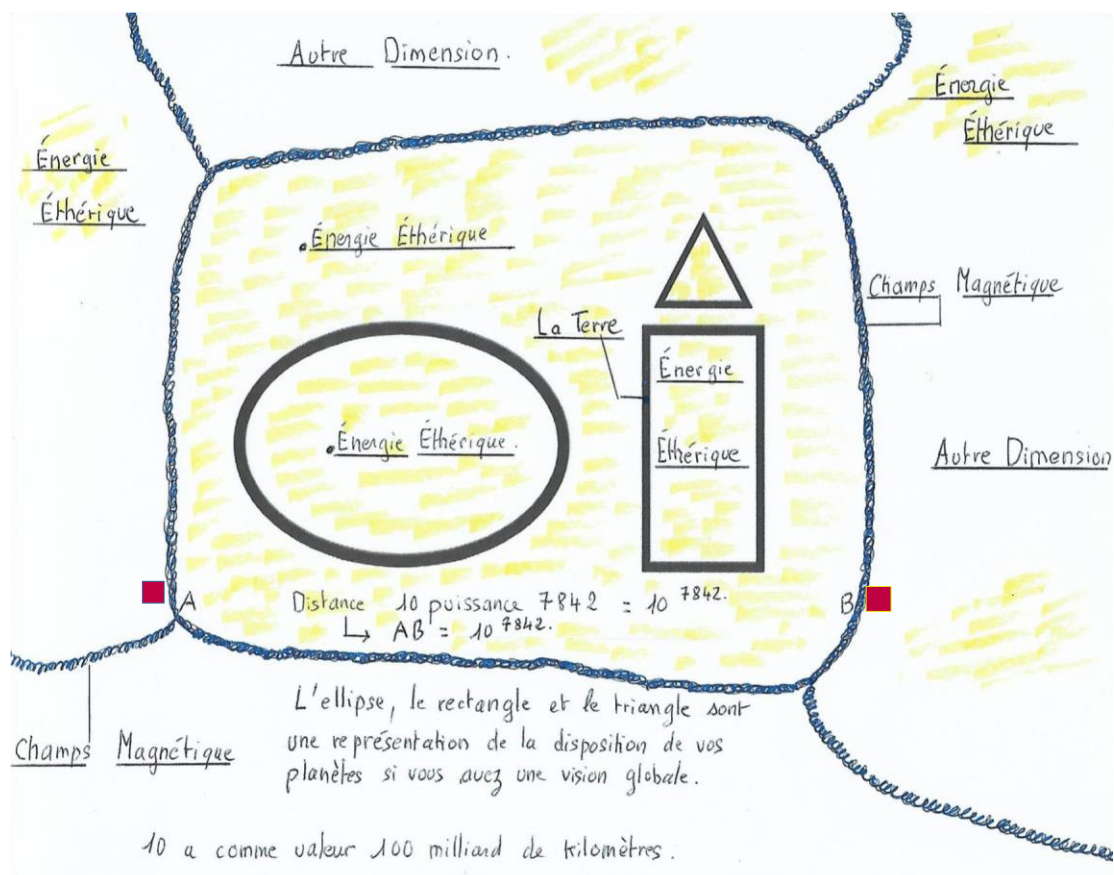 Autre Dimension.
Énergie
Éthérique
Énergie
Éthérique
. Énergie Éthérique
Champs Magnétique
La Terre
Énergie
Éthérique
. Énergie Éthérique.
Autre Dimension
A
Distance 10 puissance 7842 = 10 ⁷⁸⁴².
B
↳ AB = 10 ⁷⁸⁴².
Champs Magnétique
L'ellipse, le rectangle et le triangle sont
une représentation de la disposition de vos
planètes si vous avez une vision globale.
10 a comme valeur 100 milliard de kilomètres.